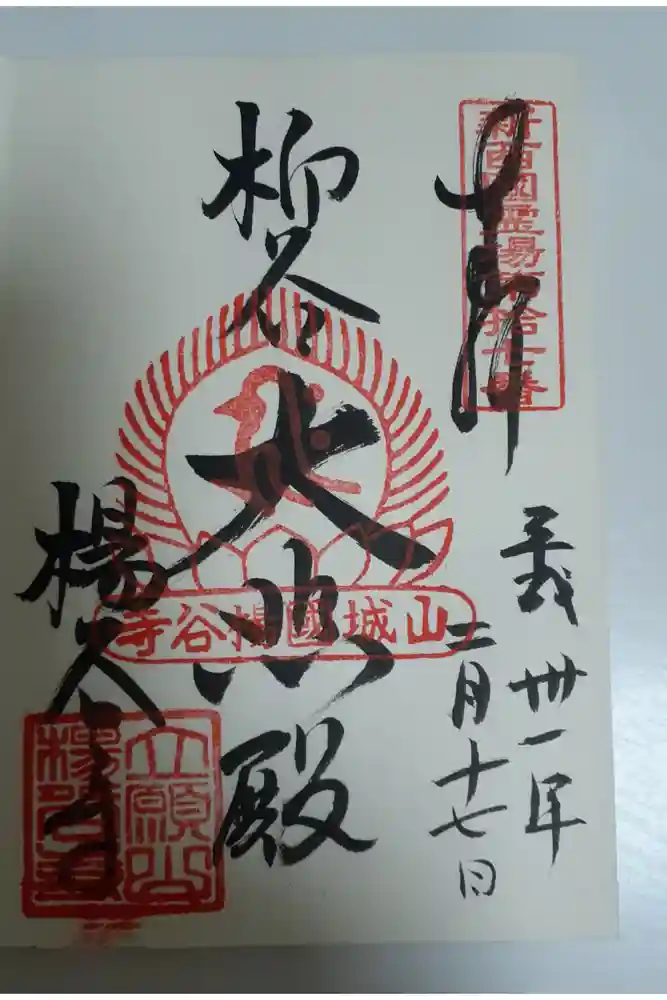 新西國霊場第拾七番
奉拝
平成卅一年
二月十七日
柳谷
大悲殿
山城國楊谷寺
楊谷寺
立願山
楊谷寺